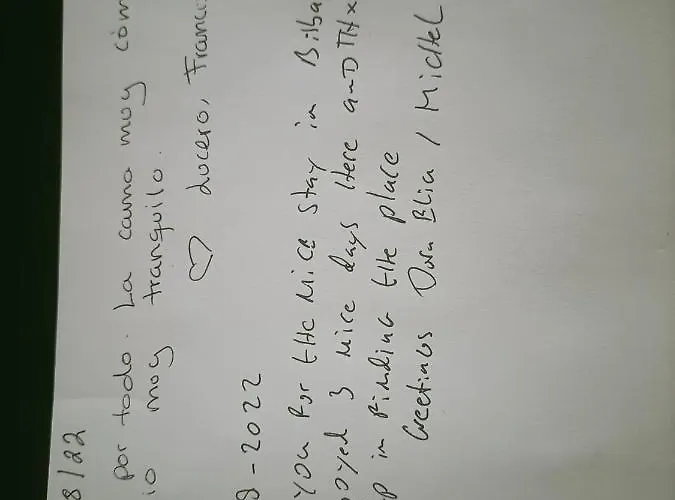 8/22
por todo. La cama moy com
io moy tranquilo.
♡ Lucero, Franci
8-2022
you for the nice stay in Bilba
oyed 3 nice days Here anD THx
p in Finding the place
Greetings Dora Elia, Michel